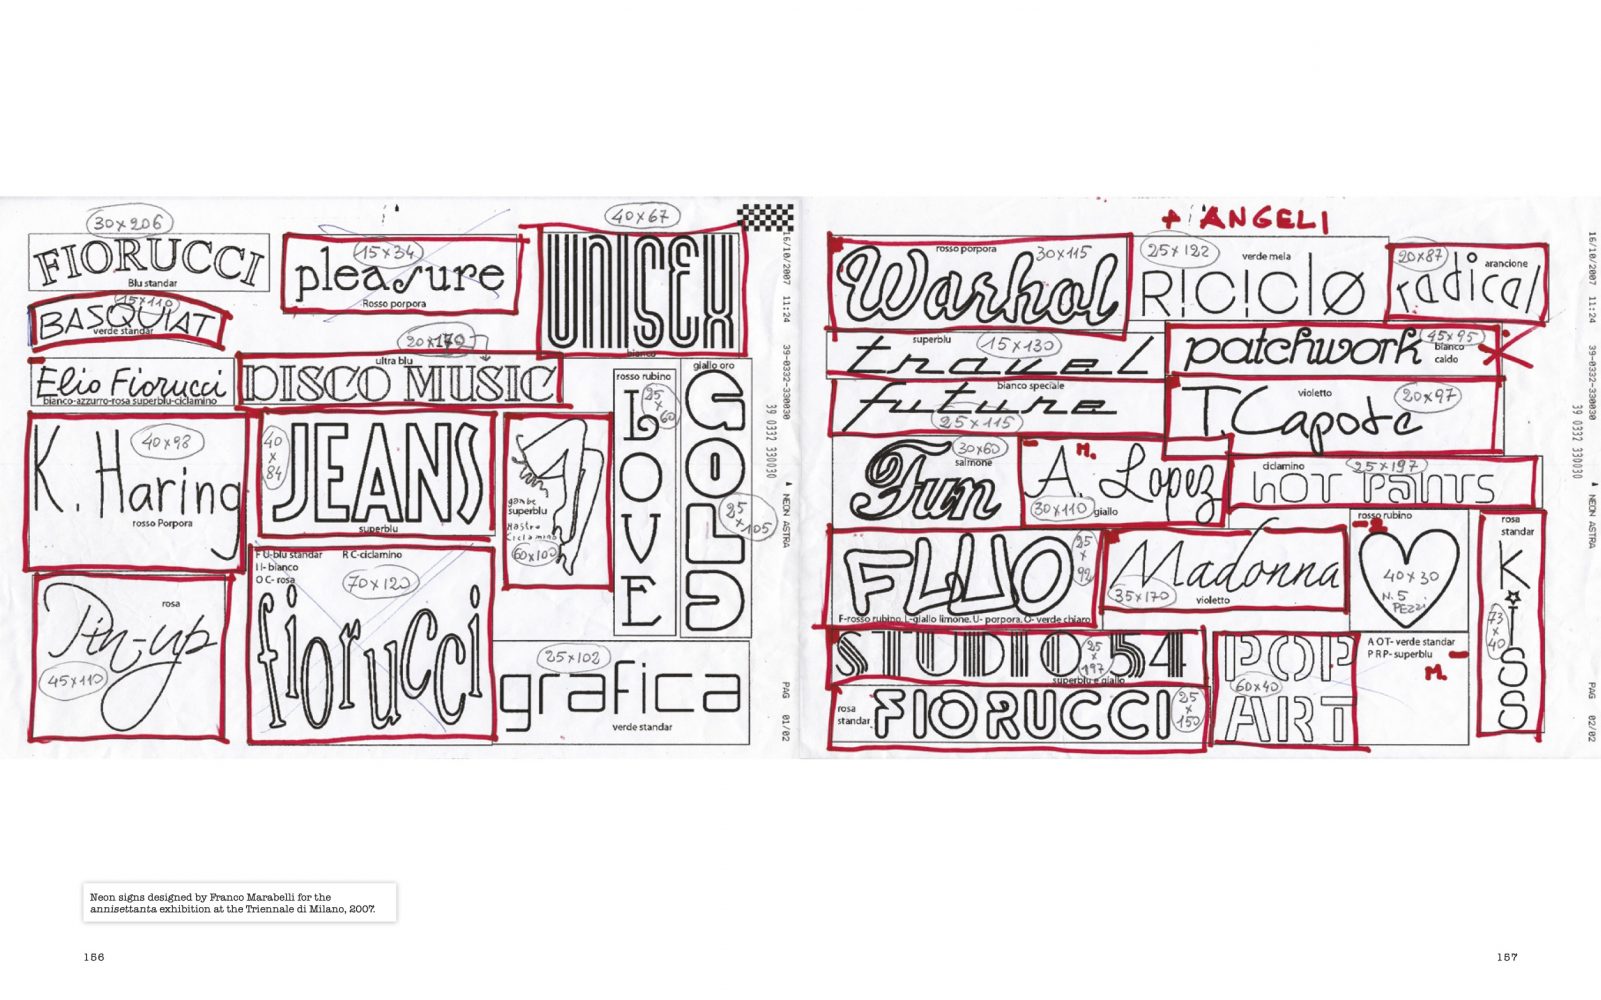 30x206
FIORUCCI
Blu standar
15x34
pleasure
Rosso porpora
40x67
UNISEX
bianco
15x110
BASQUIAT
verde standar
20x170
ultra blu
DISCO MUSIC
Elio Fiorucci
bianco-azzurro-rosa superblu-ciclamino
rosso rubino
25x60
LOVE
giallo oro
GOLD
25x105
40x98
K. Haring
rosso Porpora
40x84
JEANS
superblu
gambe
superblu
nastro
ciclamino
60x100
F U-blu standar R C-ciclamino
I I- bianco
O C- rosa
70x120
fiorucci
rosa
Pin-up
45x110
25x102
grafica
verde standar
16/10/2007 11:24 39-0332-330030 NEON ASTRA PAG 01/02
39 0332 330030
+ ANGELI
rosso porpora
30x115
Warhol
25x122
verde mela
R!C!C!Ø
20x87
arancione
radical
superblu
15x130
travel
patchwork
45x95
bianco
caldo
bianco speciale
future
25x115
violetto
20x97
T. Capote
30x60
salmone
Fun
M.
A. Lopez
30x110
giallo
ciclamino
25x197
HOT PANTS
FLUO
25x92
F-rosso rubino. L-giallo limone. U- porpora. O- verde chiaro
Madonna
35x170
violetto
rosso rubino
40x30
N. 5
PEZZI
rosa
standar
KISS
73x40
STUDIO 54
25x197
superblu e giallo
rosa
standar
FIORUCCI
25x150
POP
60x40
ART
A O T- verde standar
P R P- superblu
M.
16/10/2007 11:24 39-0332-330030 NEON ASTRA PAG 02/02
39 0332 330030
Neon signs designed by Franco Marabelli for the
annisettanta exhibition at the Triennale di Milano, 2007.
156
157